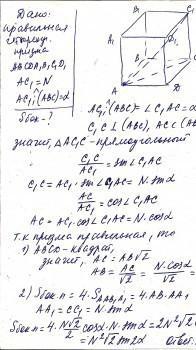 Дано:
правильная
четырехуг.
призма
ABCDA₁B₁C₁D₁
AC₁ = N
AC₁^(ABC) = α
Sбок - ?
B₁
A₁
D₁
A
D
C
AC₁^(ABC) = ∠C₁AC = α
C₁C ⊥ (ABC), AC ⊂ (ABC)
значит, ΔAC₁C - прямоугольный
C₁C/AC₁ = sin∠C₁AC
C₁C = AC₁·sin∠C₁AC = N·sinα
AC/AC₁ = cos∠C₁AC
AC = AC₁·cos∠C₁AC = N·cosα
Т.к. призма правильная, то
1) ABCD - квадрат,
значит, AC = AB√2
AB = AC/√2 = N·cosα/√2
2) Sбок.п = 4·SAA₁B₁B = 4·AB·AA₁
AA₁ = CC₁ = N·sinα
Sбок.п = 4·N√2/2 cosα·N·sinα = 2N²√2
= N²√2 sin2α Ответ